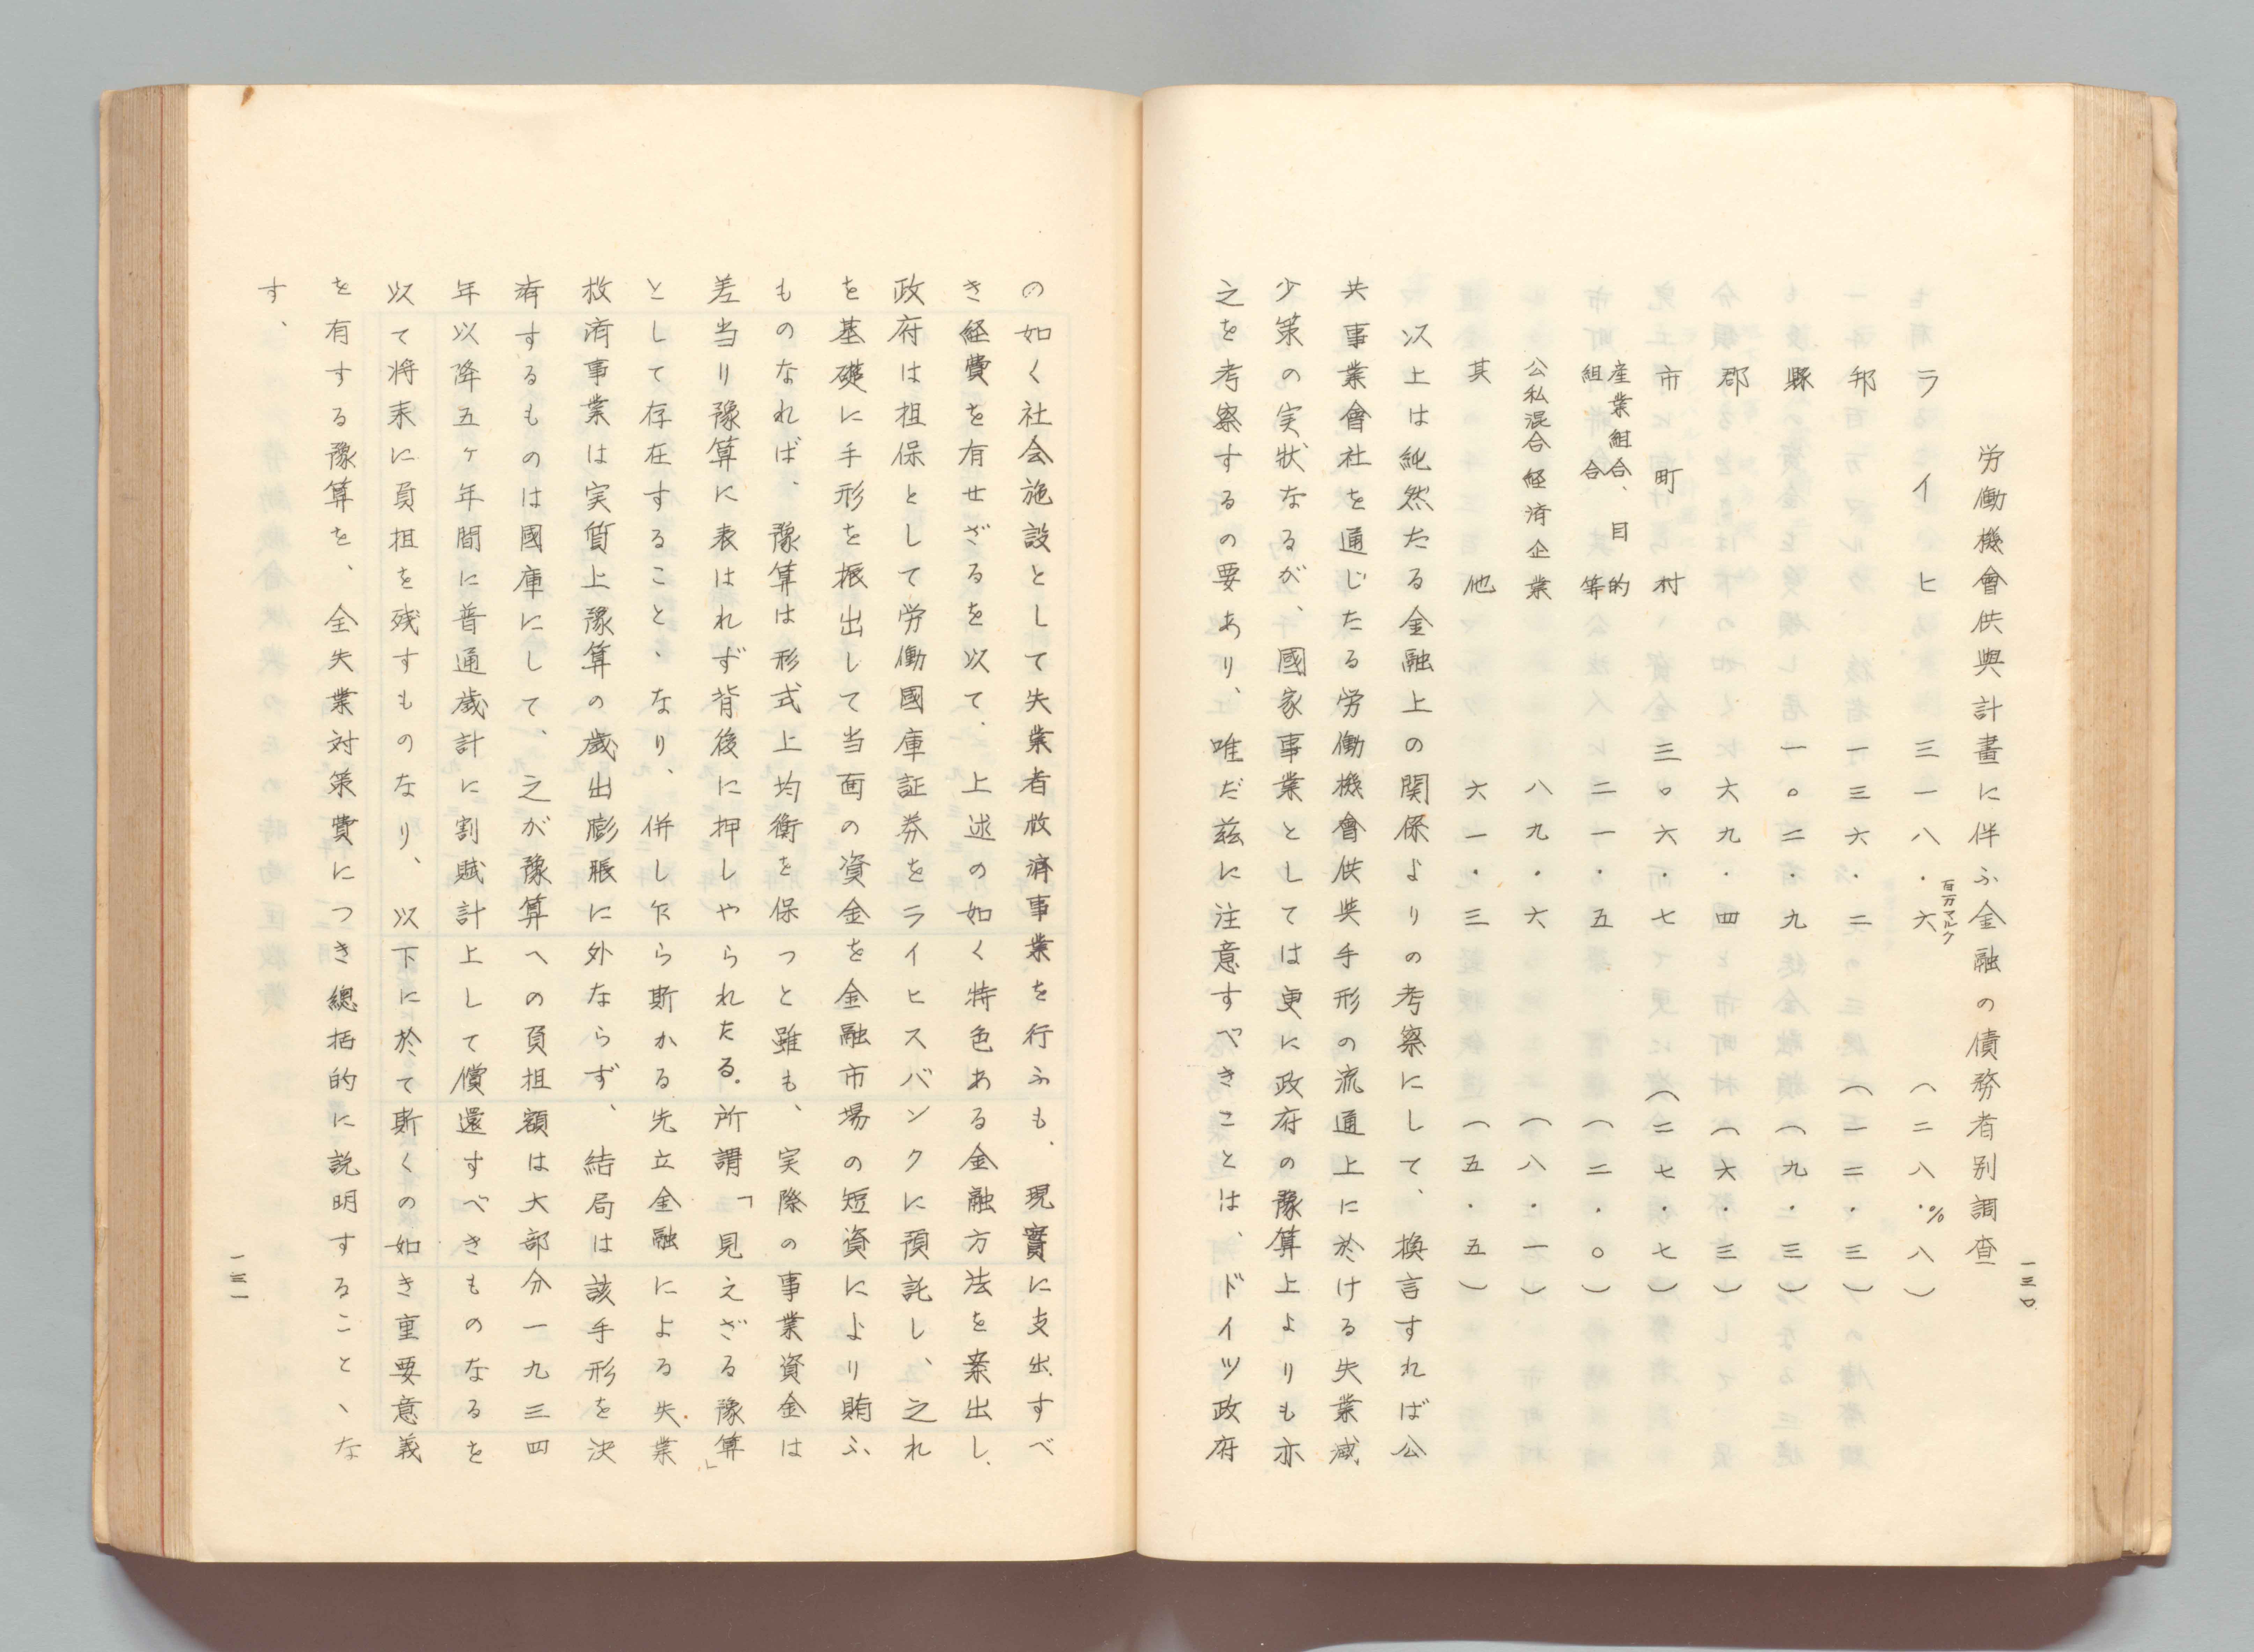 一三〇
労働機會供與計畫に伴ふ金融の債務者別調査
百万マルク
ライヒ 三一八・六 (二八・八) %
邦 一三六・二 (一二・三)
縣 一〇二・九 (九・三)
郡 六九・四 (六・三)
市町村 三〇六・七 (二七・七)
産業組合、目的
組合等 二一・五 (二・〇)
公私混合経済企業 八九・六 (八・一)
其他 六一・三 (五・五)
以上は純然たる金融上の関係よりの考察にして、換言すれば公
共事業會社を通じたる労働機會供與手形の流通上に於ける失業減
少策の実状なるが、國家事業としては更に政府の豫算上よりも亦
之を考察するの要あり、唯だ茲に注意すべきことは、ドイツ政府
の如く社会施設として失業者救済事業を行ふも、現實に支出すべ
き経費を有せざるを以て、上述の如く特色ある金融方法を案出し、
政府は担保として労働國庫証券をライヒスバンクに預託し、之れ
を基礎に手形を振出して当面の資金を金融市場の短資により賄ふ
ものなれば、豫算は形式上均衡を保つと雖も、実際の事業資金は
差当り豫算に表はれず背後に押しやられたる所謂「見えざる豫算」
として存在すること、なり、併し乍ら斯かる先立金融による失業
救済事業は実質上豫算の歳出膨脹に外ならず、結局は該手形を決
済するものは國庫にして、之が豫算への負担額は大部分一九三四
年以降五ヶ年間に普通歳計に割賦計上して償還すべきものなるを
以て将来に負担を残すものなり、以下に於て斯くの如き重要意義
を有する豫算を、全失業対策費につき總括的に説明すること、な
す、
一三一